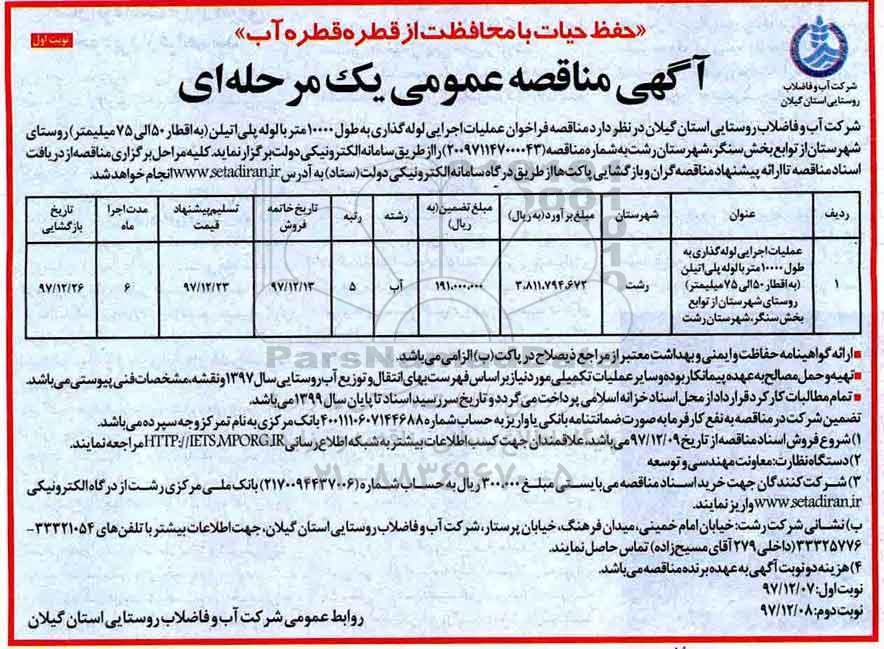 «حفظ حیات با محافظت از قطره قطره آب»
نوبت اول
شرکت آب و فاضلاب
روستایی استان گیلان
آگهی مناقصه عمومی یک مرحله‌ای
شرکت آب و فاضلاب روستایی استان گیلان در نظر دارد مناقصه فراخوان عملیات اجرایی لوله گذاری به طول ۱۰۰۰۰ متر با لوله پلی اتیلن (به اقطار ۵۰ الی ۷۵ میلیمتر) روستای
شهرستان از توابع بخش سنگر، شهرستان رشت به شماره مناقصه (۲۰۰۹۷۱۱۴۷۰۰۰۰۴۳) را از طریق سامانه الکترونیکی دولت برگزار نماید. کلیه مراحل برگزاری مناقصه از دریافت
اسناد مناقصه تا ارائه پیشنهاد مناقصه گران و بازگشایی پاکت ها از طریق درگاه سامانه الکترونیکی دولت (ستاد) به آدرس www.setadiran.ir انجام خواهد شد.
ردیف | عنوان | شهرستان | مبلغ برآورد (به ریال) | مبلغ تضمین (به ریال) | رشته | رتبه | تاریخ خاتمه فروش | تسلیم پیشنهاد قیمت | مدت اجرا ماه | تاریخ بازگشایی
۱ | عملیات اجرایی لوله گذاری به طول ۱۰۰۰۰ متر با لوله پلی اتیلن (به اقطار ۵۰ الی ۷۵ میلیمتر) روستای شهرستان از توابع بخش سنگر، شهرستان رشت | رشت | ۳.۸۱۱.۷۹۴.۶۷۲ | ۱۹۱.۰۰۰.۰۰۰ | آب | ۵ | ۹۷/۱۲/۱۳ | ۹۷/۱۲/۲۳ | ۶ | ۹۷/۱۲/۲۶
■ ارائه گواهینامه حفاظت و ایمنی و بهداشت معتبر از مراجع ذیصلاح در پاکت (ب) الزامی می باشد.
■ تهیه و حمل مصالح به عهده پیمانکار بوده و سایر عملیات تکمیلی مورد نیاز بر اساس فهرست بهای انتقال و توزیع آب روستایی سال ۱۳۹۷ و نقشه، مشخصات فنی پیوستی می باشد.
■ تمام مطالبات کارکرد قرارداد از محل اسناد خزانه اسلامی پرداخت می گردد و تاریخ سررسید اسناد تا پایان سال ۱۳۹۹ می باشد.
تضمین شرکت در مناقصه به نفع کارفرما به صورت ضمانتنامه بانکی یا واریز به حساب شماره ۴۰۰۱۱۱۰۶۰۷۱۴۴۶۸۸ بانک مرکزی به نام تمرکز وجوه سپرده می باشد.
۱) شروع فروش اسناد مناقصه از تاریخ ۹۷/۱۲/۰۹ می باشد. علاقمندان جهت کسب اطلاعات بیشتر به شبکه اطلاع رسانی HTTP://IETS.MPORG.IR مراجعه نمایند.
۲) دستگاه نظارت: معاونت مهندسی و توسعه
۳) شرکت کنندگان جهت خرید اسناد مناقصه می بایستی مبلغ ۳۰۰.۰۰۰ ریال به حساب شماره (۲۱۷۰۰۹۴۴۳۷۰۰۶) بانک ملی مرکزی رشت از درگاه الکترونیکی
www.setadiran.ir واریز نمایند.
ب) نشانی شرکت رشت: خیابان امام خمینی، میدان فرهنگ، خیابان پرستار، شرکت آب و فاضلاب روستایی استان گیلان، جهت اطلاعات بیشتر با تلفن های ۳۳۳۲۱۰۵۴-
۳۳۳۲۵۷۷۶ (داخلی ۲۷۹ آقای مسیح زاده) تماس حاصل نمایند.
۴) هزینه دو نوبت آگهی به عهده برنده مناقصه می باشد.
نوبت اول: ۹۷/۱۲/۰۷
نوبت دوم: ۹۷/۱۲/۰۸
روابط عمومی شرکت آب و فاضلاب روستایی استان گیلان
۰۲۱-۸۸۳۴۹۶۷۰-۵